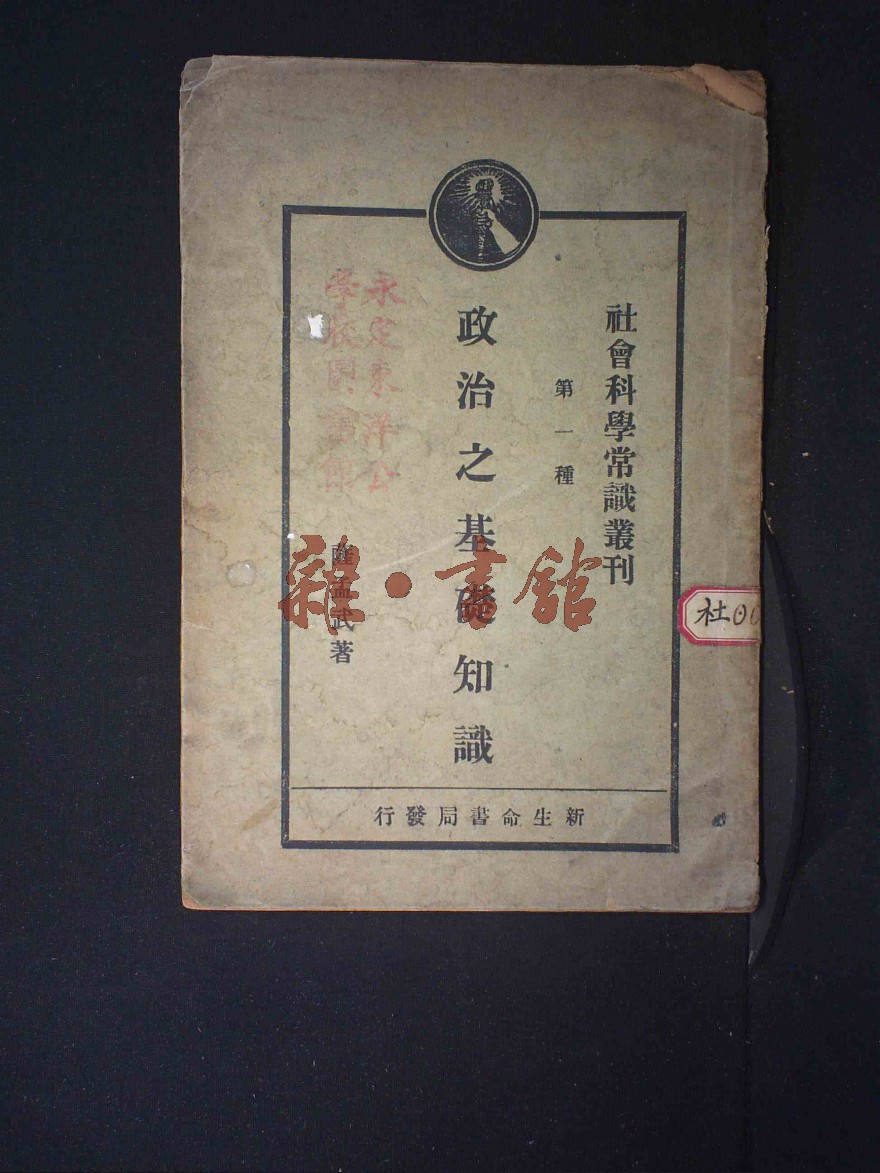 社會科學常識叢刊
第一種
政治之基礎知識
薩孟武著
新生命書局發行
永定東洋公
學校圖書館
社00
雜·書館